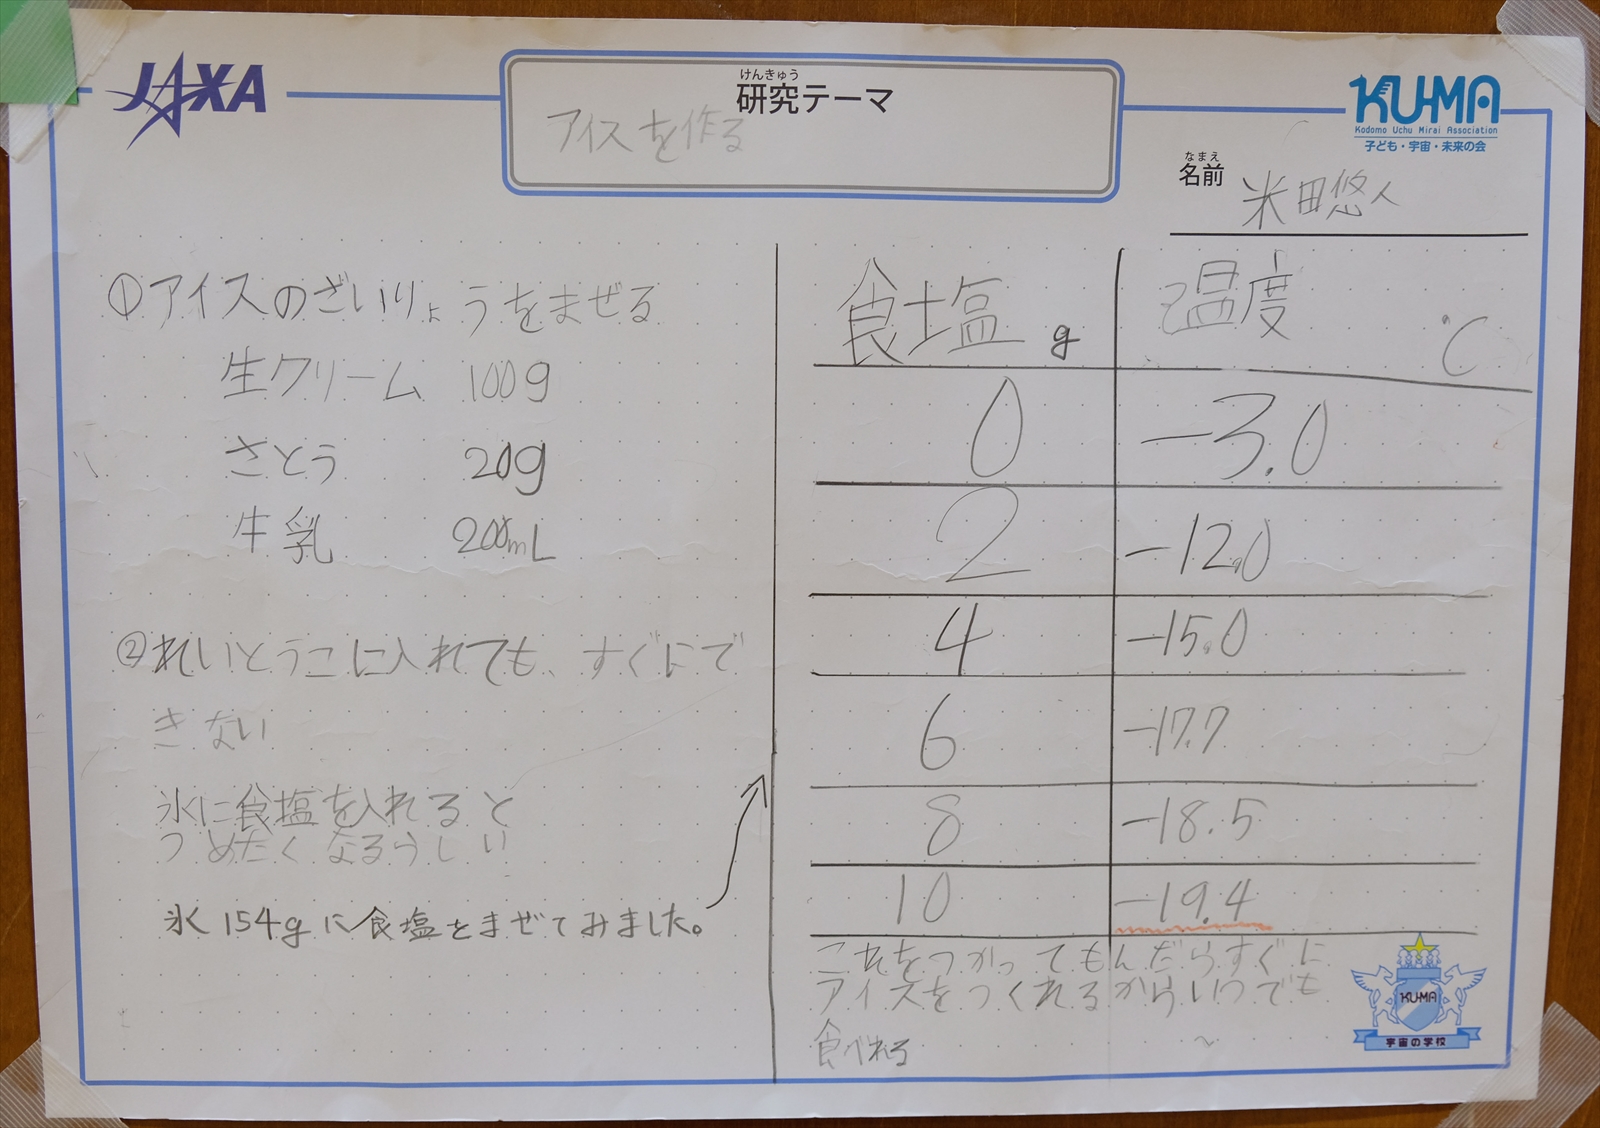 JAXA
けんきゅう
研究テーマ
アイスを作る
KU-MA
Kodomo Uchu Mirai Association
子ども・宇宙・未来の会
なまえ
名前 米田悠人
①アイスのざいりょうをまぜる
生クリーム 100g
さとう 20g
牛乳 200mL
②れいとうこに入れても、すぐにで
きない
氷に食塩を入れると
つめたくなるらしい
氷154gに食塩をまぜてみました。
食塩 g 温度 ℃
0 -3.0
2 -12.0
4 -15.0
6 -17.7
8 -18.5
10 -19.4
これをつかってもんだらすぐに
アイスをつくれるからいつでも
食べれる
KU-MA
宇宙の学校